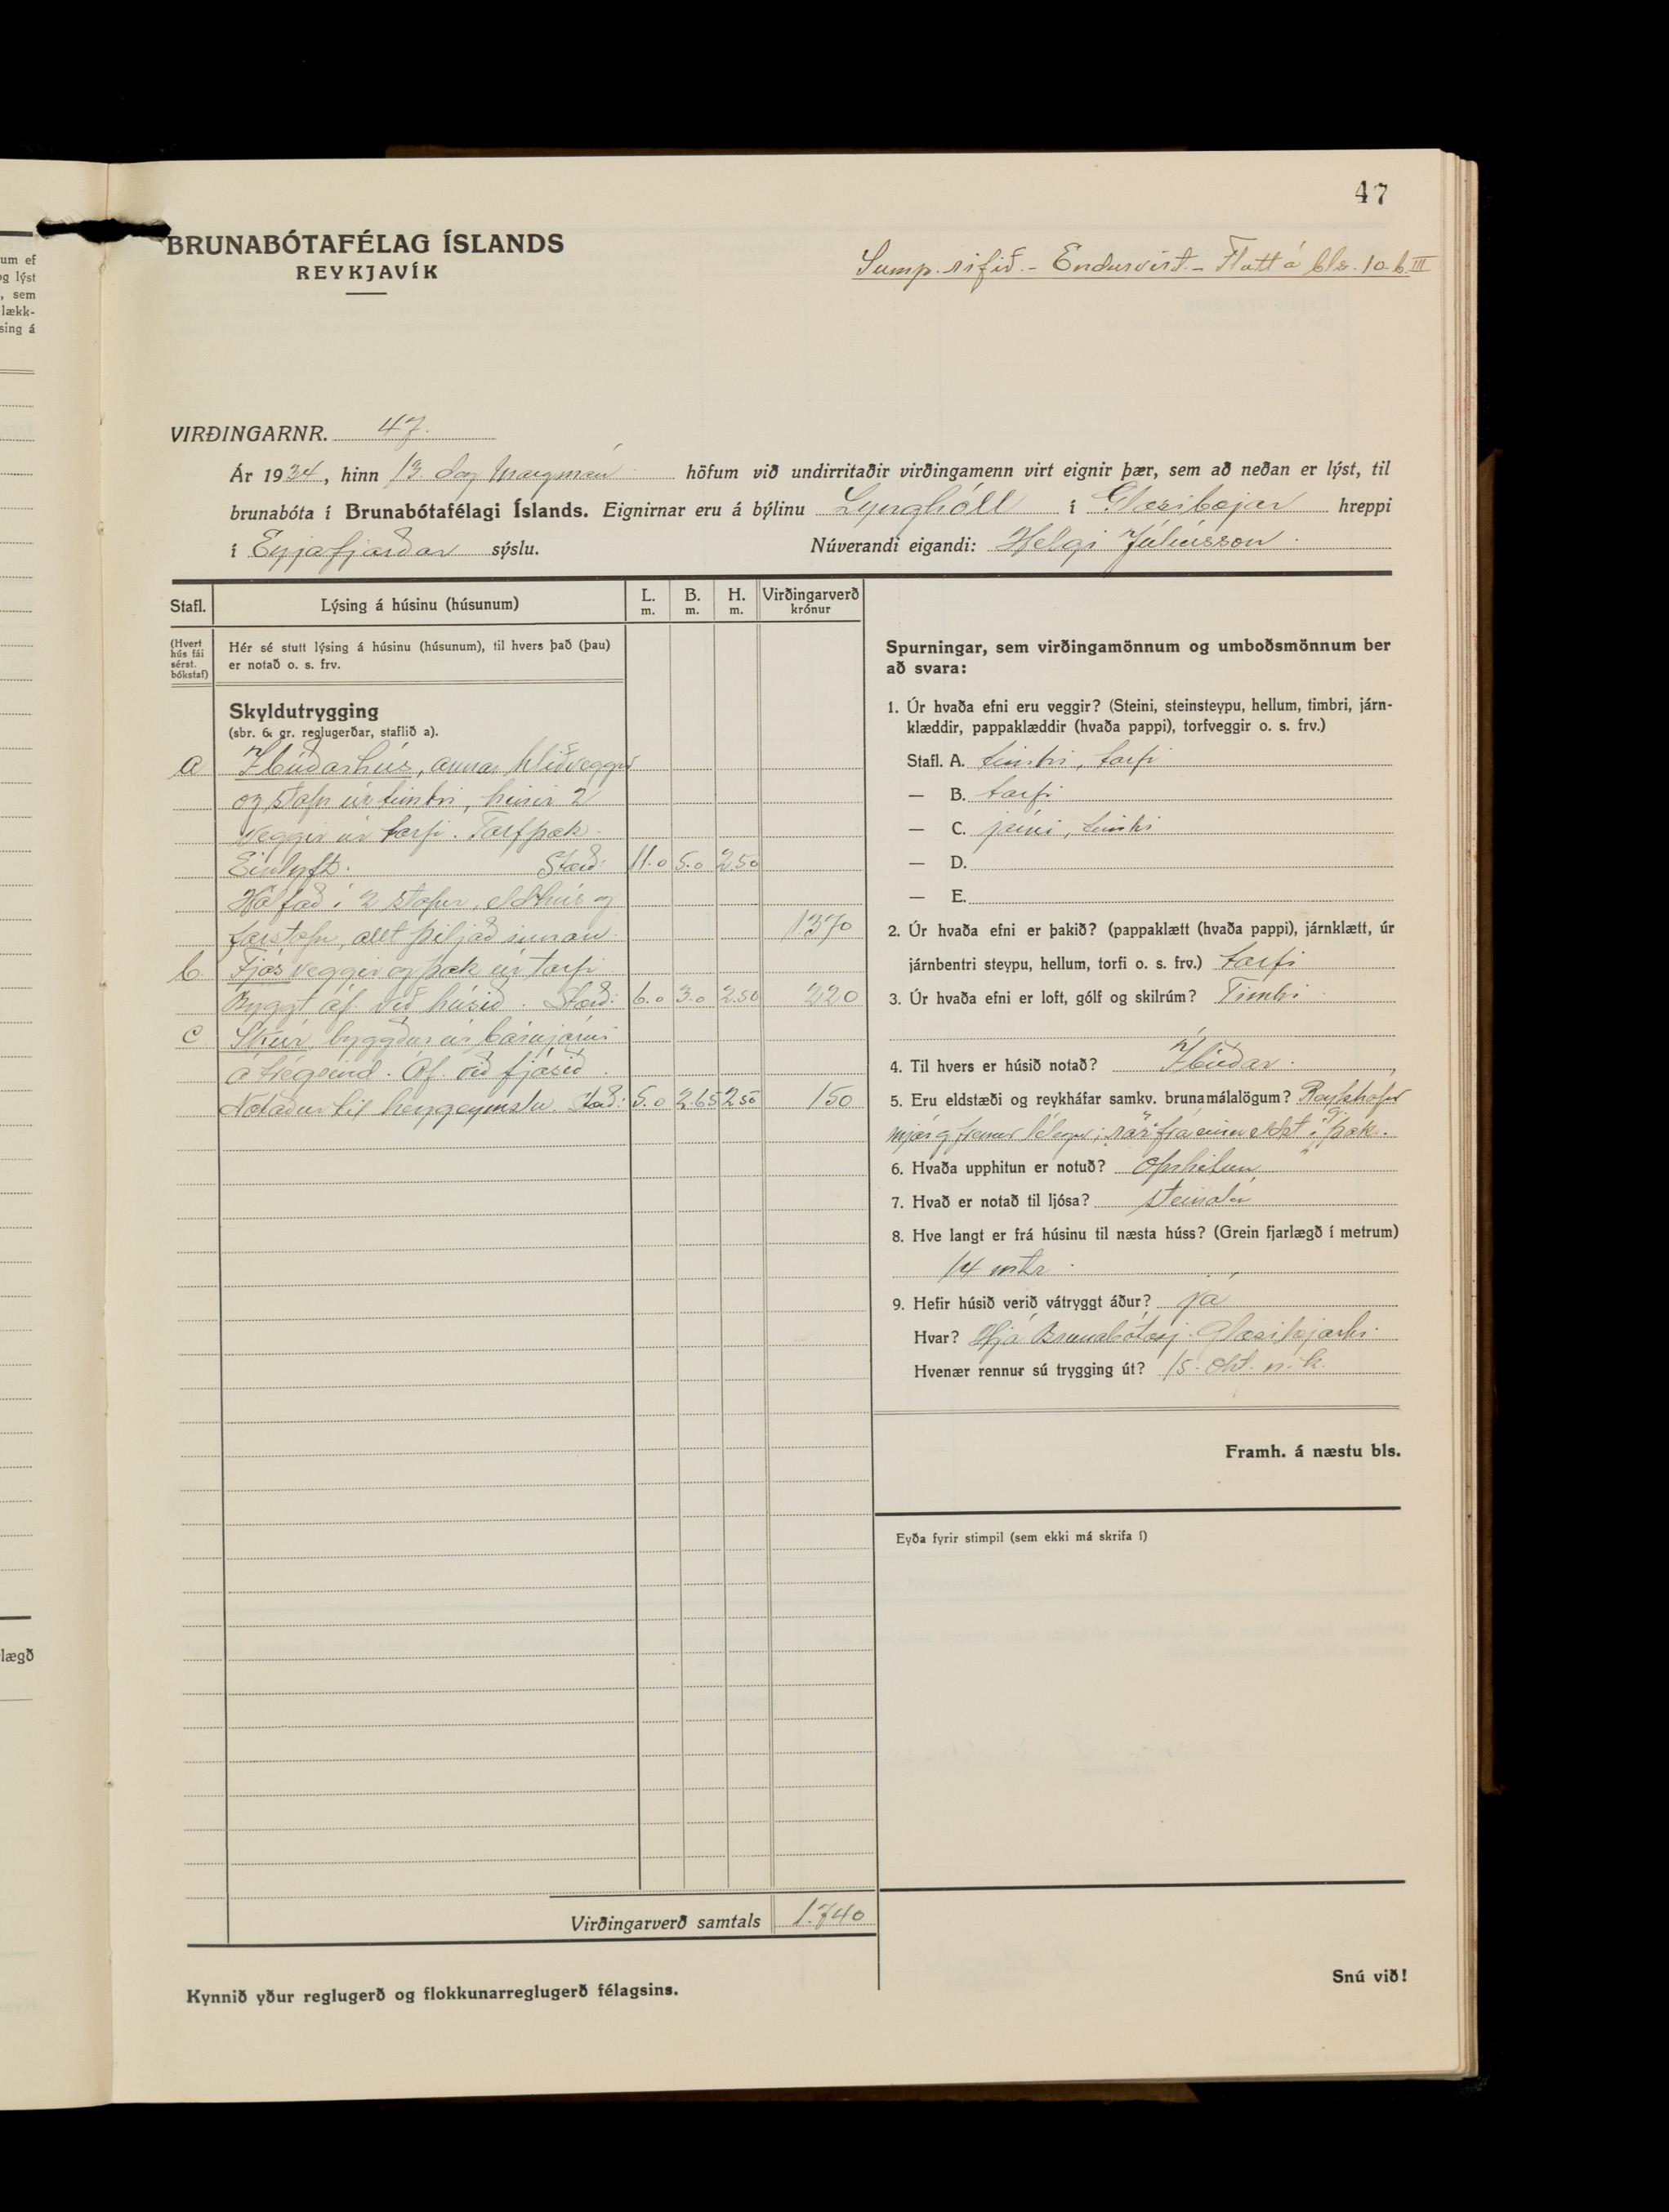 47
BRUNABÓTAFÉLAG ÍSLANDS
REYKJAVÍK
Sump. rifið. - Endurvirt - Flutt á bls. 10 b. III
VIRÐINGARNR. 47.
Ár 1934, hinn 13 dag Marzmán höfum við undirritaðir virðingamenn virt eignir þær, sem að neðan er lýst, til
brunabóta í Brunabótafélagi Íslands. Eignirnar eru á býlinu Lynghóll í Glæsibæjar hreppi
í Eyjafjarðar sýslu. Núverandi eigandi: Helgi Júlíusson.
Stafl. Lýsing á húsinu (húsunum) L. m. B. m. H. m. Virðingarverð krónur
(Hvert hús fái sérst. bókstaf)
Hér sé stutt lýsing á húsinu (húsunum), til hvers það (þau)
er notað o. s. frv.
Skyldutrygging
(sbr. 6. gr. reglugerðar, staflið a).
a Íbúðarhús, annar hliðveggur
og stafn úr timbri, hinir 2
veggir úr torfi. Torfþak.
Einlyft. Stærð: 11.0 5.0 2.50
Hólfað í 2 stofur, eldhús og
forstofu, allt þiljað innan. 1370
b. Fjós veggir og þak úr torfi
Byggt áf. við húsið. Stærð: 6.0 3.0 2.50 220
c Skúr, byggður úr bárujárni
á trégrind. Áf. við fjósið.
Notaður til heygeymslu. Stærð: 5.0 2.65 2.50 150
Virðingarverð samtals 1.740
Kynnið yður reglugerð og flokkunarreglugerð félagsins.
Spurningar, sem virðingamönnum og umboðsmönnum ber
að svara:
1. Úr hvaða efni eru veggir? (Steini, steinsteypu, hellum, timbri, járn-
klæddir, pappaklæddir (hvaða pappi), torfveggir o. s. frv.)
Stafl. A. timbri, torfi
— B. torfi
— C. járni, timbri
— D.
— E.
2. Úr hvaða efni er þakið? (pappaklætt (hvaða pappi), járnklætt, úr
járnbentri steypu, hellum, torfi o. s. frv.) torfi
3. Úr hvaða efni er loft, gólf og skilrúm? Timbri
4. Til hvers er húsið notað? Íbúðar.
5. Eru eldstæði og reykháfar samkv. brunamálalögum? Reykháfur
mjór og fremur lélegur; rör frá einu eldst. í þak.
6. Hvaða upphitun er notuð? Ofnhitun
7. Hvað er notað til ljósa? steinolía
8. Hve langt er frá húsinu til næsta húss? (Grein fjarlægð í metrum)
14 mtr.
9. Hefir húsið verið vátryggt áður? já
Hvar? Hjá Brunabótasj. Glæsibæjarhr.
Hvenær rennur sú trygging út? 15. okt. n. k.
Framh. á næstu bls.
Eyða fyrir stimpil (sem ekki má skrifa í)
Snú við!
um ef
og lýst
, sem
lækk-
sing á
lægð